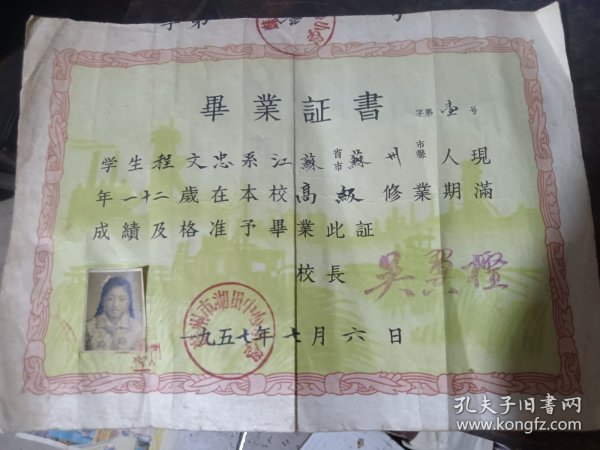 字第
号
畢業証書
字第壹号
学生程文忠系江蘇省市蘇州市縣人現
年一十二歲在本校高級修業期滿
成績及格准予畢業此証
校長
一九五七年七月六日
孔夫子旧书网
www.kongfz.com